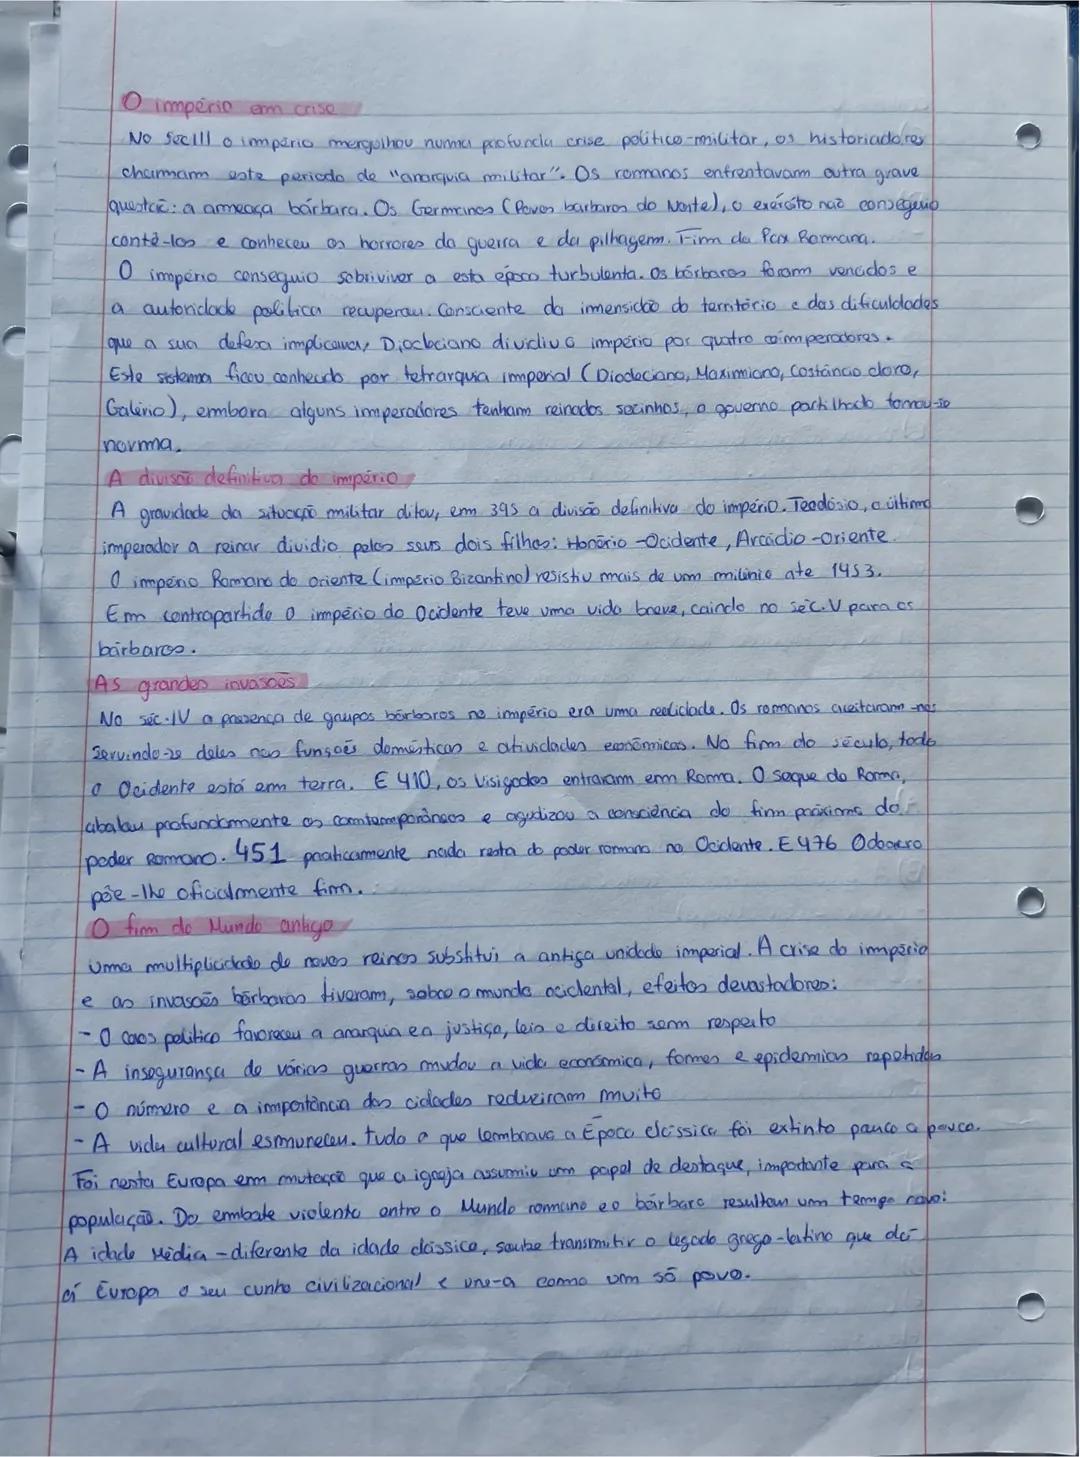 O império em crise
No Sec III o império mergulhou numa profunda crise político-militar, os historiadores
chamam este periodo de "anarquia militar". Os romanos enfrentavam outra grave
questão: a ameaça bárbara. Os Germanos (Povos barbaros do Norte), o exército não conseguio
contê-los e conheceu os horrores da guerra e da pilhagem. Fim da Pax Romana.
O império conseguio sobriviver a esta época turbulenta. Os bárbaros foram vencidos e
a autoridade política recuperou. Consciente da imensidão do território e das dificuldades
que a sua defesa implicava, Diocleciano dividiu o império por quatro coimperadores.
Este sistema ficou conhecido por tetrarquia imperial (Diodeciano, Maximiano, Costâncio cloro,
Galério), embora alguns imperadores tenham reinados sozinhos, o governo partilhado tornou-se
norma.
A divisão definitiva do império
A gravidade da situação militar ditou, em 395 a divisão definitiva do império. Teodósio, o último
imperador a reinar dividio pelos seus dois filhos: Honório - Ocidente, Arcádio - Oriente.
O império Romano do oriente (império Bizantino) resistiu mais de um milínio ate 1453.
Em contrapartida o império do Ocidente teve uma vida breve, caindo no séc. V para os
bárbaros.
As grandes invasões
No séc. IV a presença de grupos bárbaros no império era uma realidade. Os romanos aceitaram-nos
servindo-se deles nas funções domésticas e atividades económicas. No fim do século, todo
o Ocidente está em terra. E 410, os Visigodos entraram em Roma. O saque do Roma,
abalou profundamente os comtemporâneos e agudizou a consciência do fim próximo do
poder Romano. 451 praticamente nada resta do poder romano no Ocidente. E 476 Odoacro
põe-lhe oficialmente fim.
O fim do Mundo antigo
Uma multiplicidade de novos reinos substitui a antiga unidade imperial. A crise do império
e as invasões bárbaras tiveram, sobre o mundo ocidental, efeitos devastadores:
- O caos político favoreceu a anarquia ea justiça, leis e direito sem respeito
- A insegurança de várias guerras mudou a vida económica, fomes e epidemias repetidas
- O número e a importância das cidades reduziram muito
- A vida cultural esmureceu. tudo o que lembrava a Época clássica foi extinto pouco a pouco.
Foi nesta Europa em mutação que a igreja assumiu um papel de destaque, importante para a
população. Do embate violento entre o Mundo romano e o bárbaro resultou um tempo novo:
A idade Média - diferente da idade clássica, soube transmitir o legado grego-latino que dá
á Europa o seu cunho civilizacional e une-a como um só povo.